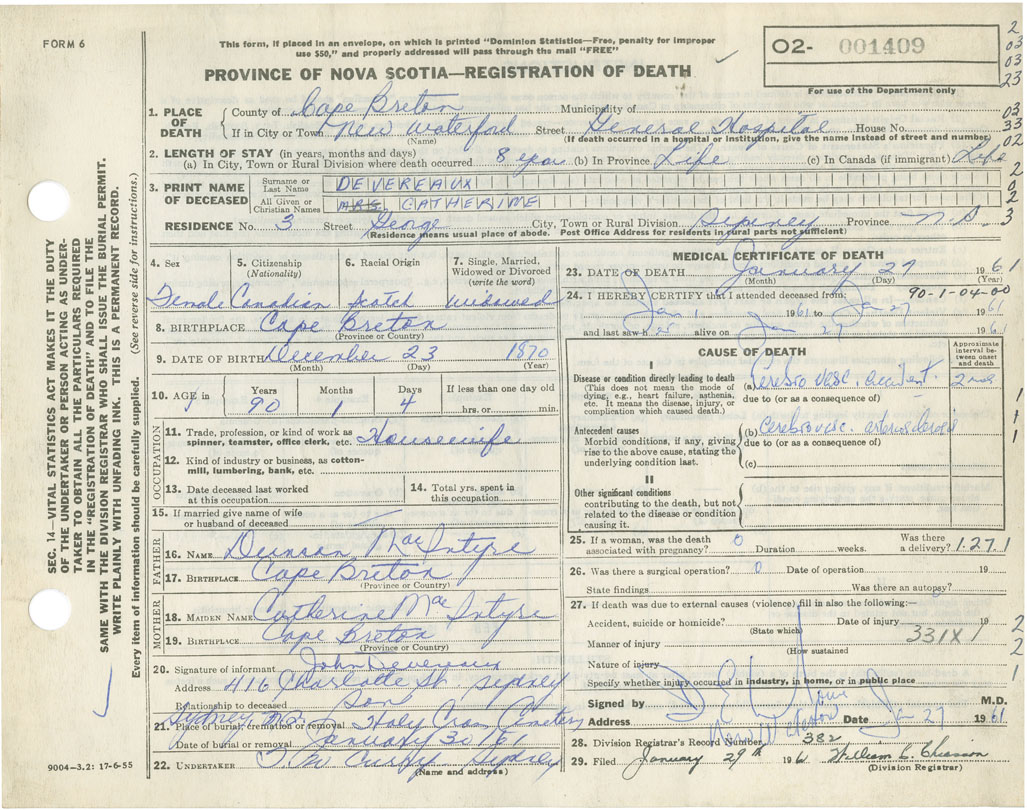 FORM 6
This form, if placed in an envelope, on which is printed "Dominion Statistics—Free, penalty for improper
use $50," and properly addressed will pass through the mail "FREE"
PROVINCE OF NOVA SCOTIA—REGISTRATION OF DEATH
02- 001409
For use of the Department only
2
03
03
23
03
33
02
2
0
2
3
1. PLACE OF DEATH
County of Cape Breton Municipality of
If in City or Town New Waterford Street General Hospital House No.
(Name) (If death occurred in a hospital or institution, give the name instead of street and number)
2. LENGTH OF STAY (in years, months and days)
(a) In City, Town or Rural Division where death occurred 8 (b) In Province Life (c) In Canada (if immigrant) Life
3. PRINT NAME OF DECEASED
Surname or Last Name DEVEREAUX
All Given or Christian Names MRS CATHERINE
RESIDENCE No. 3 Street George City, Town or Rural Division Sydney Province N.S
(Residence means usual place of abode. Post Office Address for residents in rural parts not sufficient)
4. Sex
Female
5. Citizenship
(Nationality)
Canadian
6. Racial Origin
Scotch
7. Single, Married,
Widowed or Divorced
(write the word)
Widowed
8. BIRTHPLACE Cape Breton
(Province or Country)
9. DATE OF BIRTH December 23 1870
(Month) (Day) (Year)
10. AGE
Years 90
Months 1
Days 4
If less than one day old
hrs. or min.
OCCUPATION
11. Trade, profession, or kind of work as
spinner, teamster, office clerk, etc. Housewife
12. Kind of industry or business, as cotton-
mill, lumbering, bank, etc.
13. Date deceased last worked
at this occupation
14. Total yrs. spent in
this occupation
15. If married give name of wife
or husband of deceased
FATHER
16. NAME Duncan MacIntyre
17. BIRTHPLACE Cape Breton
(Province or Country)
MOTHER
18. MAIDEN NAME Catherine MacIntyre
19. BIRTHPLACE Cape Breton
(Province or Country)
20. Signature of informant John Devereaux
Address 416 Charlotte St Sydney
Relationship to deceased Son
Sydney N.S.
21. Place of burial, cremation or removal Holy Cross Cemetery
Date of burial or removal January 30/61
22. UNDERTAKER T. W. Curry Sydney
(Name and address)
MEDICAL CERTIFICATE OF DEATH
23. DATE OF DEATH January 27 1961
(Month) (Day) (Year)
24. I HEREBY CERTIFY that I attended deceased from: 90-1-04-00
Jan 1 1961 to Jan 27 1961
and last saw h er alive on Jan 27 1961
CAUSE OF DEATH
Approximate
interval be-
tween onset
and death
I
Disease or condition directly leading to death
(This does not mean the mode of
dying, e.g., heart failure, asthenia,
etc. It means the disease, injury, or
complication which caused death.)
(a) Cerebro vasc. accident.
due to (or as a consequence of)
Antecedent causes
Morbid conditions, if any, giving
rise to the above cause, stating the
underlying condition last.
(b) Cerebrovasc. arteriosclerosis
due to (or as a consequence of)
(c)
II
Other significant conditions
contributing to the death, but not
related to the disease or condition
causing it.
1
1
1
25. If a woman, was the death
associated with pregnancy? 0 Duration weeks. Was there
a delivery? 1.27.1
26. Was there a surgical operation? 0 Date of operation
State findings Was there an autopsy?
27. If death was due to external causes (violence) fill in also the following:—
Accident, suicide or homicide? Date of injury 19
(State which)
331X
Manner of injury
(How sustained
Nature of injury
Specify whether injury occurred in industry, in home, or in public place
2
2
1
Signed by M.D.
Address New Waterford Date Jan 27 1961
28. Division Registrar's Record Number 382
29. Filed January 29th 196 William C. Chiasson
(Division Registrar)
SEC. 14—VITAL STATISTICS ACT MAKES IT THE DUTY
OF THE UNDERTAKER OR PERSON ACTING AS UNDER-
TAKER TO OBTAIN ALL THE PARTICULARS REQUIRED
IN THE "REGISTRATION OF DEATH" AND TO FILE THE
SAME WITH THE DIVISION REGISTRAR WHO SHALL ISSUE THE BURIAL PERMIT.
WRITE PLAINLY WITH UNFADING INK. THIS IS A PERMANENT RECORD.
Every item of information should be carefully supplied. (See reverse side for instructions.)
9004—3.2: 17-6-55